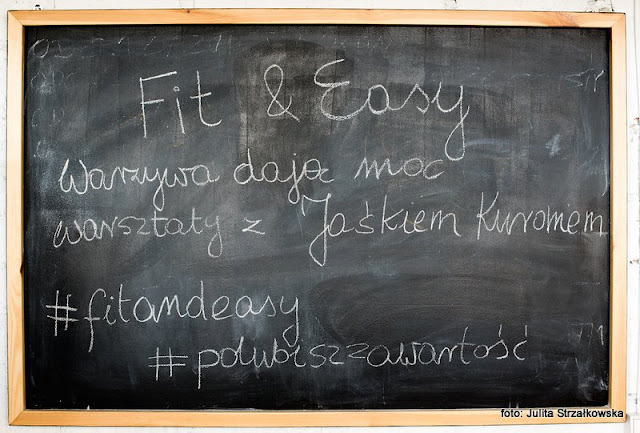 Fit & Easy
Warzywa dają moc
warsztaty z Jaśkiem Kuroniem
#fitandeasy
#polubiszzawartość
foto: Julita Strzałkowska